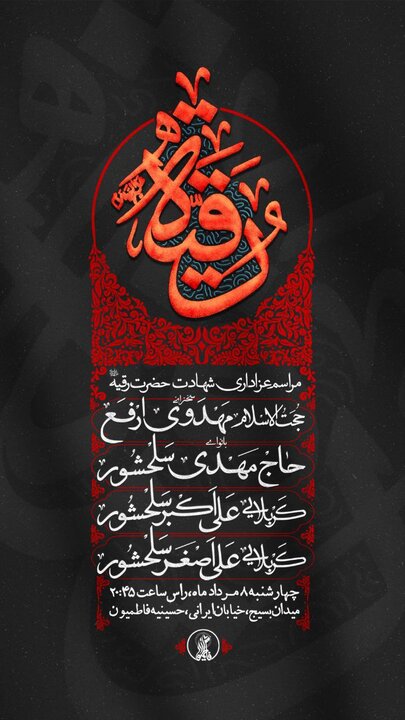 رقیه
مراسم عزاداری شهادت حضرت رقیه
سخنرانی
حجت‌الاسلام مهدوی ارفع
بانوای
حاج مهدی سلحشور
کربلایی علی اکبر سلحشور
کربلایی علی اصغر سلحشور
چهارشنبه ۸ مرداد ماه، راس ساعت ۲۰:۴۵
میدان بسیج، خیابان ایرانی، حسینیه فاطمیون